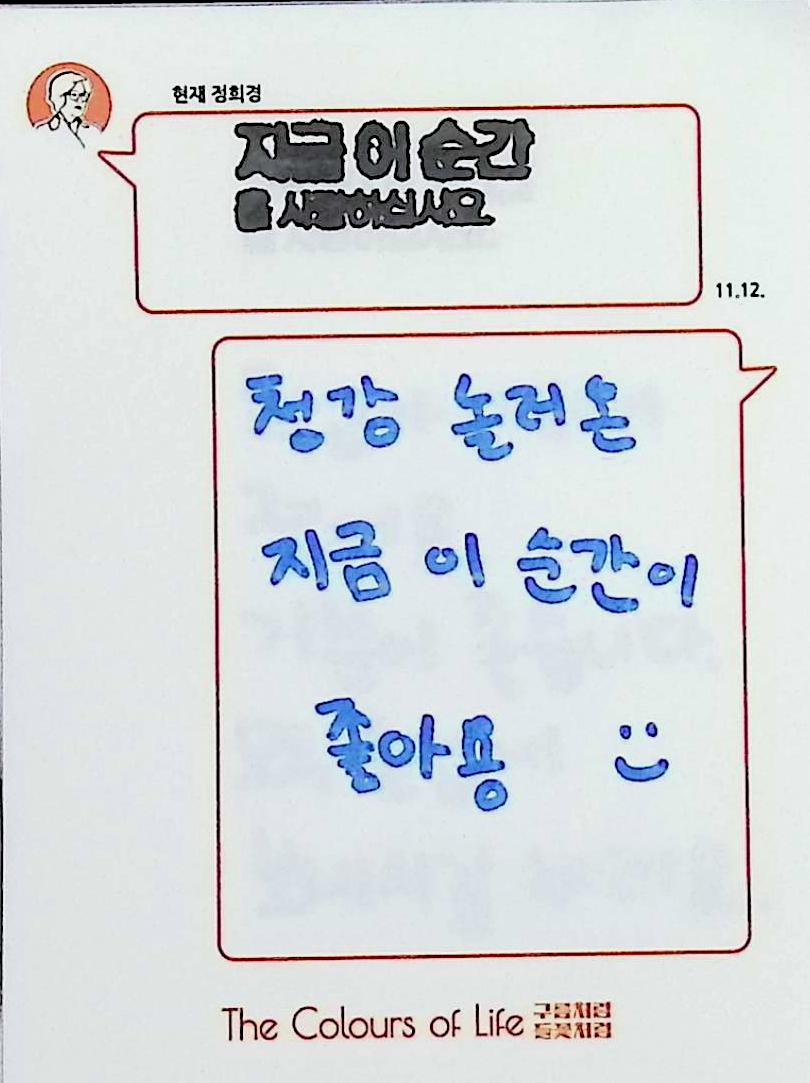 현재 정희경
지금 이 순간
을 사랑하십시요.
11.12.
청강 놀러온
지금 이 순간이
좋아용 :)
The Colours of Life 구름처럼
들꽃처럼